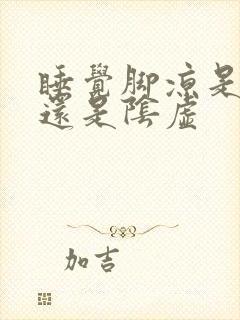 睡覺脚凉是
還是陰虛
加吉